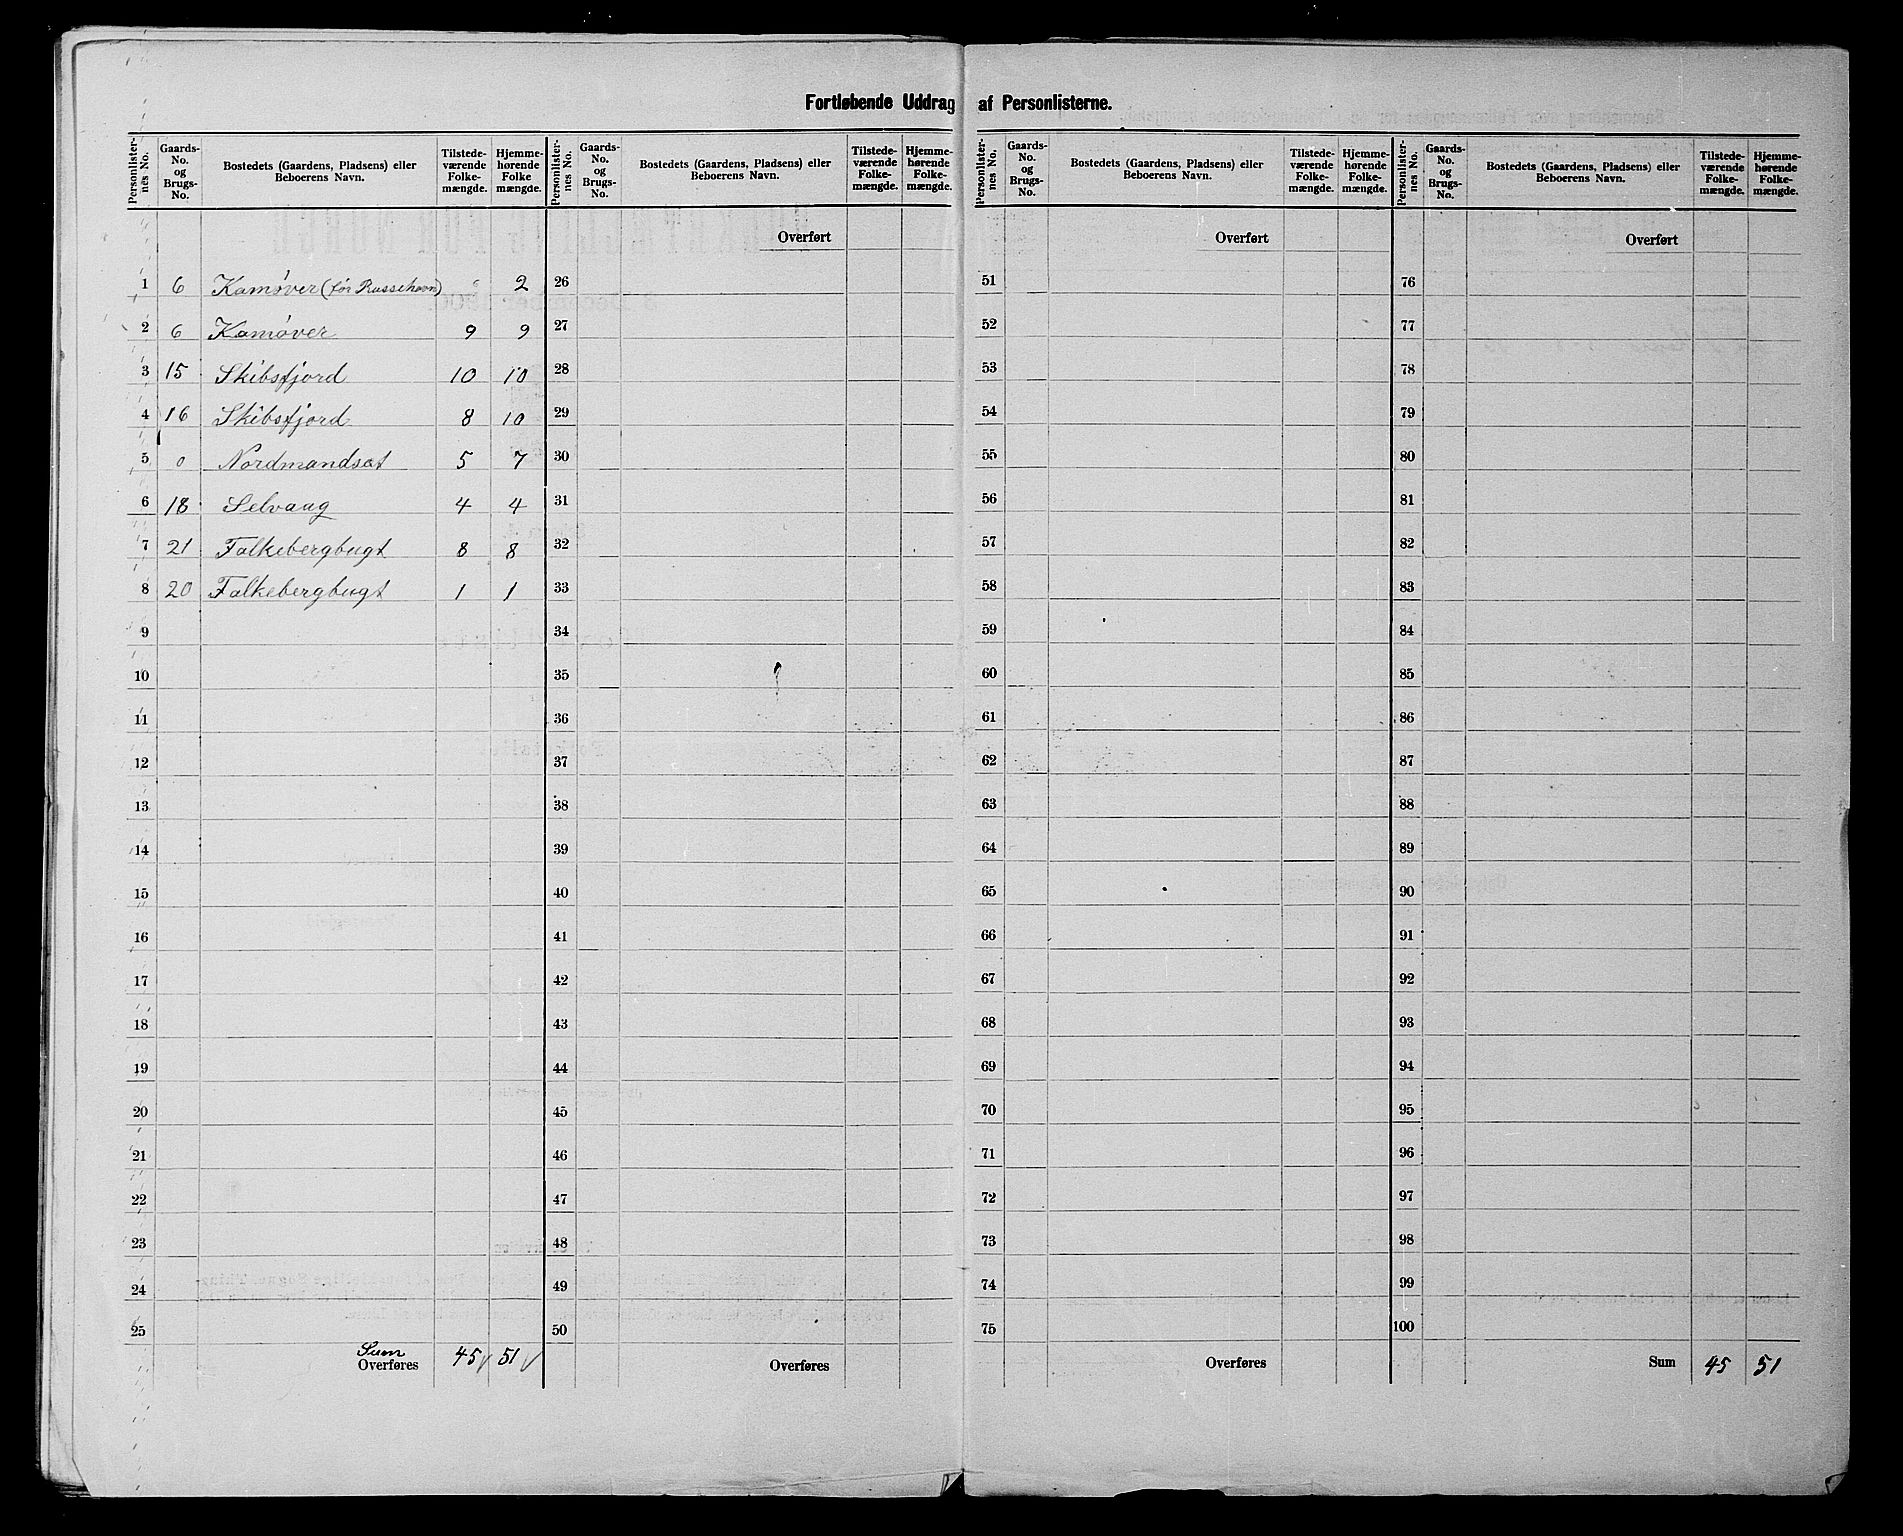 Fortløbende Uddrag af Personlisterne.
Personlister-nes No. Gaards-No. og Brugs-No. Bostedets (Gaardens, Pladsens) eller Beboerens Navn. Tilstede-værende Folke-mængde. Hjemme-hørende Folke mængde. Personlister-nes No. Gaards-No. og Brugs-No. Bostedets (Gaardens, Pladsens) eller Beboerens Navn. Tilstede-værende Folke-mængde. Hjemme-hørende Folke-mængde. Personlister-nes No. Gaards-No. og Brugs-No. Bostedets (Gaardens, Pladsens) eller Beboerens Navn. Tilstede-værende Folke-mængde. Hjemme-hørende Folke-mængde. Personlister-nes No. Gaards-No. og Brugs-No. Bostedets (Gaardens, Pladsens) eller Beboerens Navn. Tilstede-værende Folke-mængde. Hjemme-hørende Folke-mængde.
Overført Overført Overført
1 6 Kamøver (før Russehavn) 2 26 51 76
2 6 Kamøver 9 9 27 52 77
3 15 Skibsfjord 10 10 28 53 78
4 16 Skibsfjord 8 10 29 54 79
5 0 Nordmandsæt 5 7 30 55 80
6 18 Selvaag 4 4 31 56 81
7 21 Falkebergbugt 8 8 32 57 82
8 20 Falkebergbugt 1 1 33 58 83
9 34 59 84
10 35 60 85
11 36 61 86
12 37 62 87
13 38 63 88
14 39 64 89
15 40 65 90
16 41 66 91
17 42 67 92
18 43 68 93
19 44 69 94
20 45 70 95
21 46 71 96
22 47 72 97
23 48 73 98
24 49 74 99
25 50 75 100
Sum
Overføres 45 51 Overføres Overføres Sum 45 51